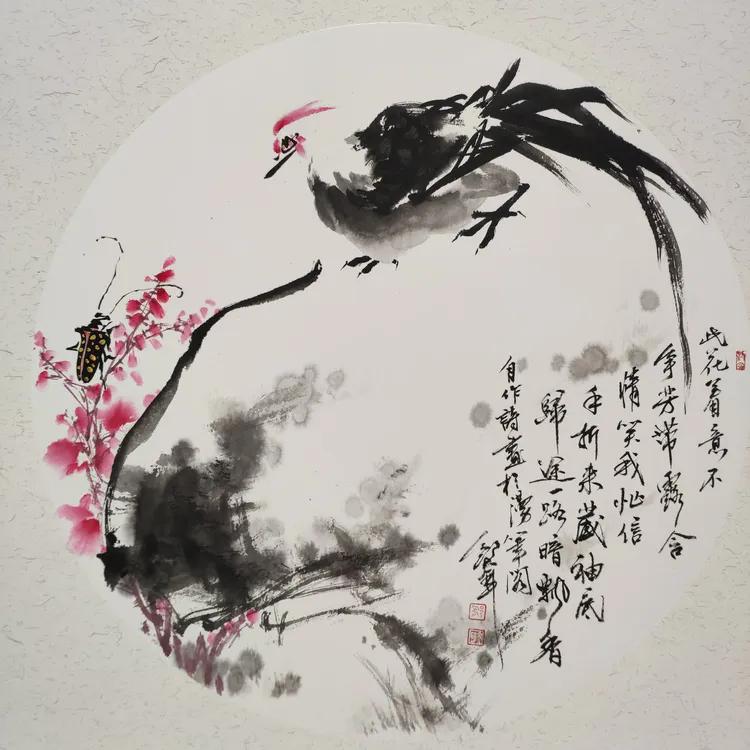 此花着意不
争芳带露含
情笑我忙信
手折来藏袖底
歸途一路暗飘香
自作詩畫於漫筆阁